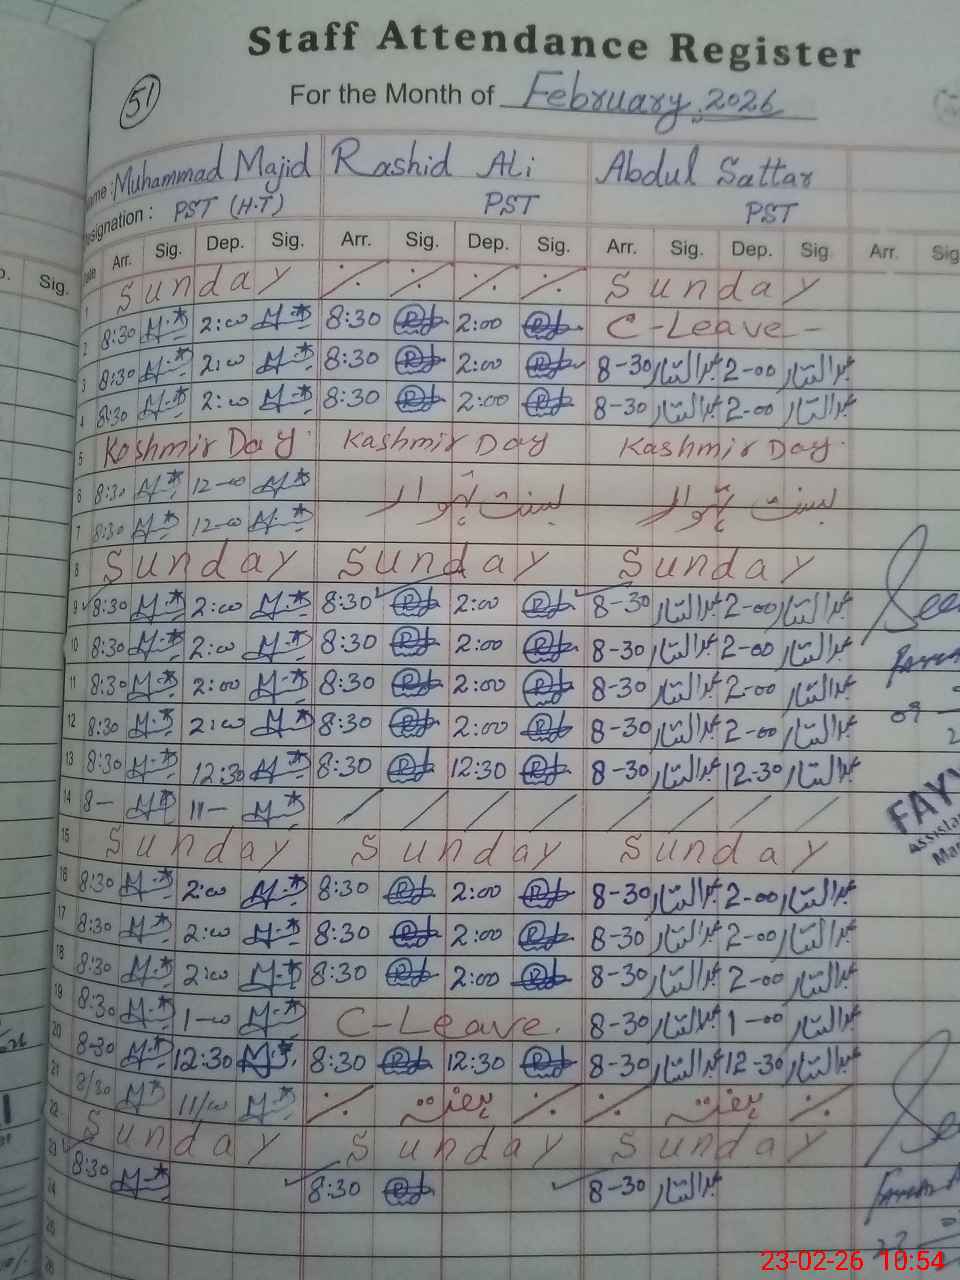 Staff Attendance Register
51
For the Month of February, 2026
Name : Muhammad Majid Rashid Ali Abdul Sattar
Designation : PST (H.T) PST PST
Date Arr. Sig. Dep. Sig. Arr. Sig. Dep. Sig. Arr. Sig. Dep. Sig. Arr. Sig.
Sig.
1 Sunday Sunday
2 8:30 2:00 8:30 2:00 C-Leave -
3 8:30 2:00 8:30 2:00 8-30 عبدالستار 2-00 عبدالستار
4 8:30 2:00 8:30 2:00 8-30 عبدالستار 2-00 عبدالستار
5 Kashmir Day Kashmir Day Kashmir Day
6 8:30 12-00
7 8:30 12-00
8 Sunday Sunday Sunday
9 8:30 2:00 8:30 2:00 8-30 عبدالستار 2-00 عبدالستار
10 8:30 2:00 8:30 2:00 8-30 عبدالستار 2-00 عبدالستار
11 8:30 2:00 8:30 2:00 8-30 عبدالستار 2-00 عبدالستار
12 8:30 2:00 8:30 2:00 8-30 عبدالستار 2-00 عبدالستار
13 8:30 12:30 8:30 12:30 8-30 عبدالستار 12-30 عبدالستار
14 8- 11-
15 Sunday Sunday Sunday
16 8:30 2:00 8:30 2:00 8-30 عبدالستار 2-00 عبدالستار
17 8:30 2:00 8:30 2:00 8-30 عبدالستار 2-00 عبدالستار
18 8:30 2:00 8:30 2:00 8-30 عبدالستار 2-00 عبدالستار
19 8:30 1-00 C-Leave. 8-30 عبدالستار 1-00 عبدالستار
20 8-30 12:30 8:30 12:30 8-30 عبدالستار 12-30 عبدالستار
21 8/30 11/00 ہفتہ ہفتہ
22 Sunday Sunday Sunday
23 8:30 8:30 8-30 عبدالستار
24
25
26
23-02-26 10:54